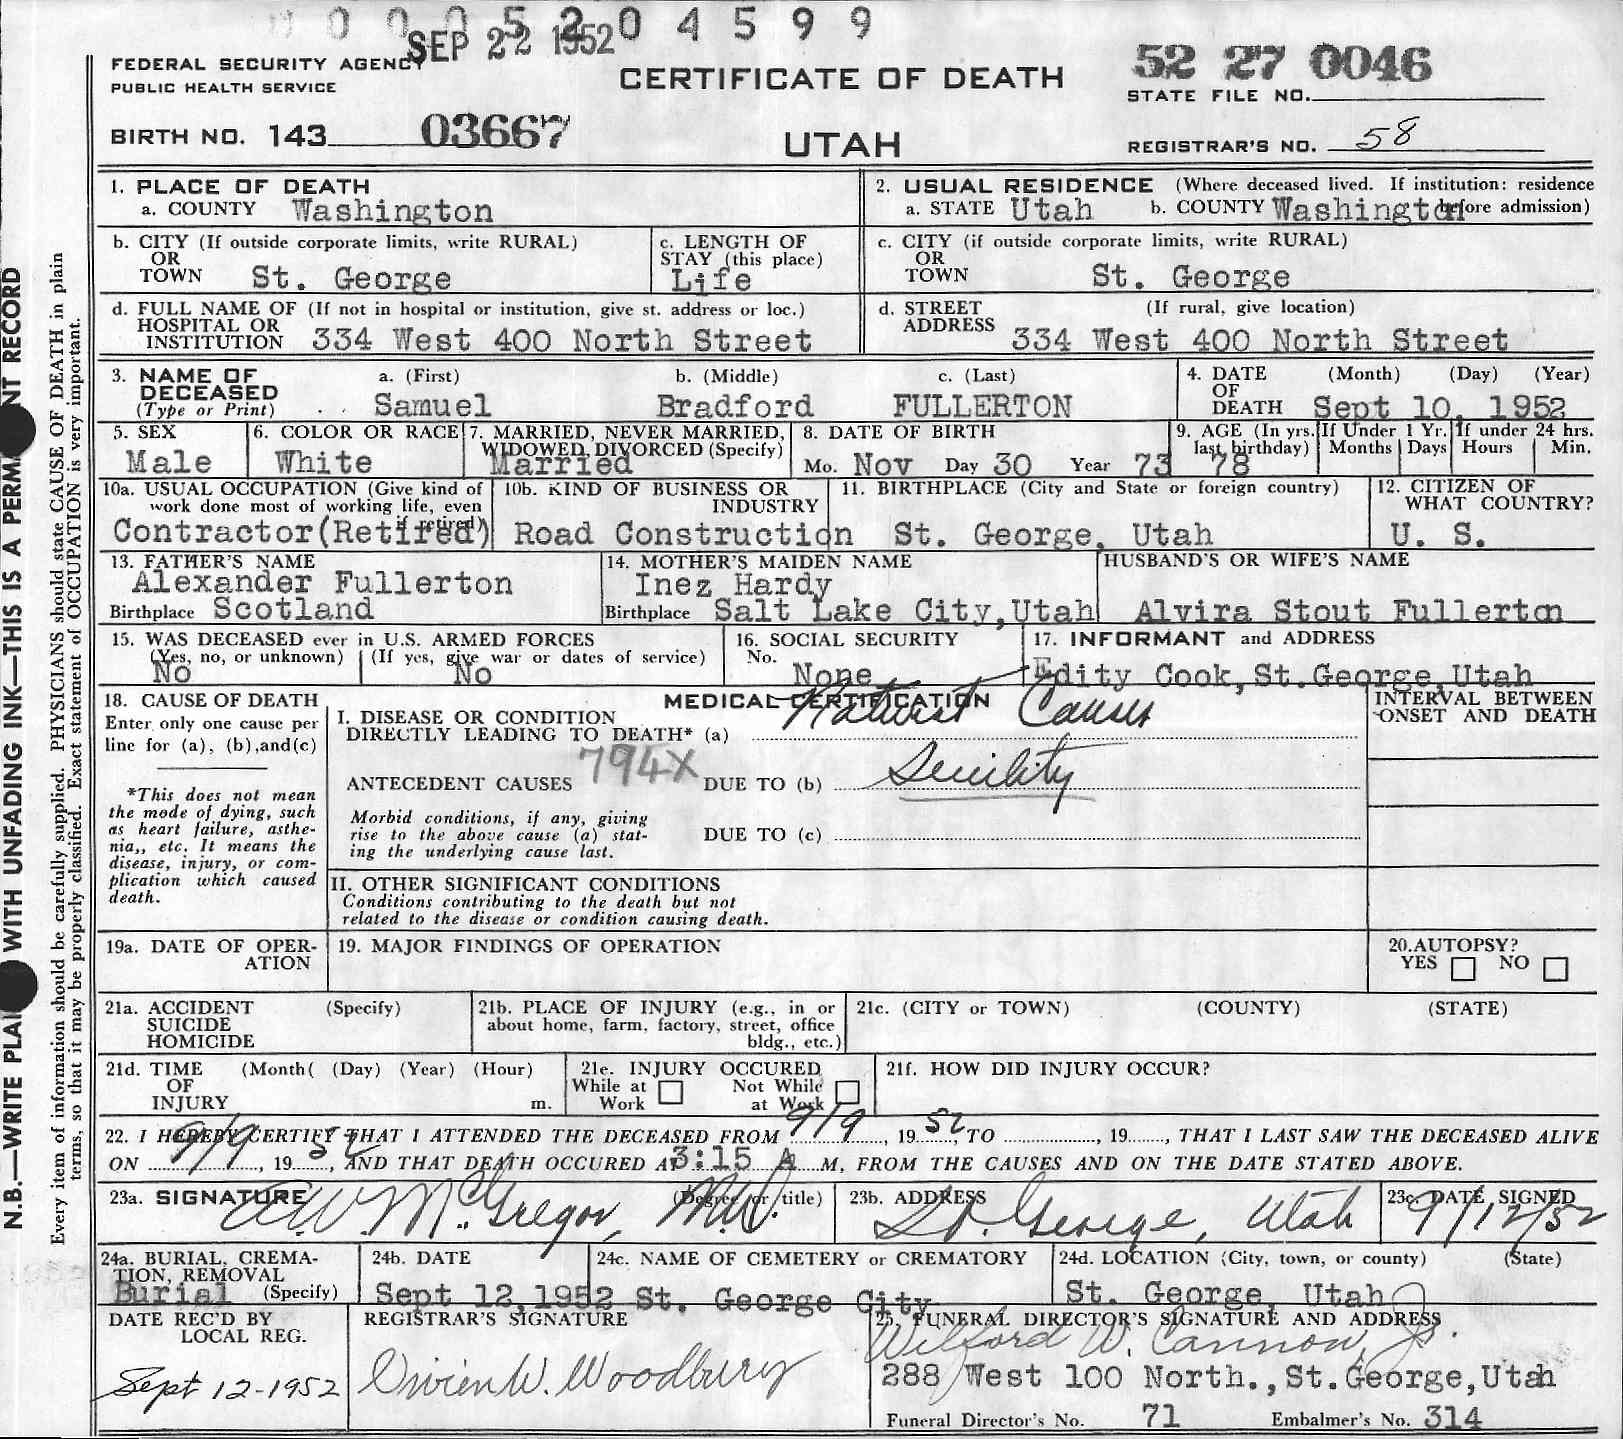 0 0 0 5 2 0 4 5 9 9
SEP 22 1952
FEDERAL SECURITY AGENCY
PUBLIC HEALTH SERVICE
CERTIFICATE OF DEATH
52 27 0046
STATE FILE NO.
BIRTH NO. 143 03667
UTAH
REGISTRAR'S NO. 58
1. PLACE OF DEATH
a. COUNTY Washington
2. USUAL RESIDENCE (Where deceased lived. If institution: residence before admission)
a. STATE Utah b. COUNTY Washington
b. CITY (If outside corporate limits, write RURAL)
OR
TOWN St. George
c. LENGTH OF
STAY (this place)
Life
c. CITY (if outside corporate limits, write RURAL)
OR
TOWN St. George
d. FULL NAME OF (If not in hospital or institution, give st. address or loc.)
HOSPITAL OR
INSTITUTION 334 West 400 North Street
d. STREET (If rural, give location)
ADDRESS 334 West 400 North Street
3. NAME OF DECEASED (Type or Print)
a. (First) b. (Middle) c. (Last)
Samuel Bradford FULLERTON
4. DATE OF DEATH (Month) (Day) (Year)
Sept 10, 1952
5. SEX
Male
6. COLOR OR RACE
White
7. MARRIED, NEVER MARRIED,
WIDOWED, DIVORCED (Specify)
Married
8. DATE OF BIRTH
Mo. Nov Day 30 Year 73
9. AGE (In yrs. last birthday)
78
If Under 1 Yr.
Months Days
If under 24 hrs.
Hours Min.
10a. USUAL OCCUPATION (Give kind of
work done most of working life, even
if retired)
Contractor(Retired)
10b. KIND OF BUSINESS OR
INDUSTRY
Road Construction
11. BIRTHPLACE (City and State or foreign country)
St. George, Utah
12. CITIZEN OF
WHAT COUNTRY?
U. S.
13. FATHER'S NAME
Alexander Fullerton
Birthplace Scotland
14. MOTHER'S MAIDEN NAME
Inez Hardy
Birthplace Salt Lake City,Utah
HUSBAND'S OR WIFE'S NAME
Alvira Stout Fullerton
15. WAS DECEASED ever in U.S. ARMED FORCES
(Yes, no, or unknown) (If yes, give war or dates of service)
No No
16. SOCIAL SECURITY
No.
None
17. INFORMANT and ADDRESS
Edity Cook,St.George,Utah
18. CAUSE OF DEATH
Enter only one cause per
line for (a), (b),and(c)
*This does not mean
the mode of dying, such
as heart failure, asthe-
nia,, etc. It means the
disease, injury, or com-
plication which caused
death.
MEDICAL CERTIFICATION
I. DISEASE OR CONDITION
DIRECTLY LEADING TO DEATH* (a) Natural Causes
ANTECEDENT CAUSES 794X DUE TO (b) Senility
Morbid conditions, if any, giving
rise to the above cause (a) stat-
ing the underlying cause last.
DUE TO (c)
INTERVAL BETWEEN
ONSET AND DEATH
II. OTHER SIGNIFICANT CONDITIONS
Conditions contributing to the death but not
related to the disease or condition causing death.
19a. DATE OF OPER-
ATION
19. MAJOR FINDINGS OF OPERATION
20.AUTOPSY?
YES NO
21a. ACCIDENT (Specify)
SUICIDE
HOMICIDE
21b. PLACE OF INJURY (e.g., in or
about home, farm, factory, street, office
bldg., etc.)
21c. (CITY or TOWN) (COUNTY) (STATE)
21d. TIME (Month( (Day) (Year) (Hour)
OF
INJURY m.
21e. INJURY OCCURED
While at Work Not While at Work
21f. HOW DID INJURY OCCUR?
22. I HEREBY CERTIFY THAT I ATTENDED THE DECEASED FROM 9/9, 19 52, TO ........, 19......, THAT I LAST SAW THE DECEASED ALIVE
ON 9/9, 19 52, AND THAT DEATH OCCURED AT 3:15 A M, FROM THE CAUSES AND ON THE DATE STATED ABOVE.
23a. SIGNATURE (Degree or title)
A.W. McGregor, M.D.
23b. ADDRESS
St. George, Utah
23c. DATE SIGNED
9/12/52
24a. BURIAL, CREMA-
TION, REMOVAL
(Specify)
Burial
24b. DATE
Sept 12,1952
24c. NAME OF CEMETERY or CREMATORY
St. George City
24d. LOCATION (City, town, or county) (State)
St. George, Utah
DATE REC'D BY
LOCAL REG.
Sept 12-1952
REGISTRAR'S SIGNATURE
Vivien W. Woodbury
25. FUNERAL DIRECTOR'S SIGNATURE AND ADDRESS
Wilford W. Cannon, Jr.
288 West 100 North.,St.George,Utah
Funeral Director's No. 71 Embalmer's No. 314
N.B.—WRITE PLAI WITH UNFADING INK—THIS IS A PERM NT RECORD
Every item of information should be carefully supplied. PHYSICIANS should state CAUSE OF DEATH in plain
terms, so that it may be properly classified. Exact statement of OCCUPATION is very important.